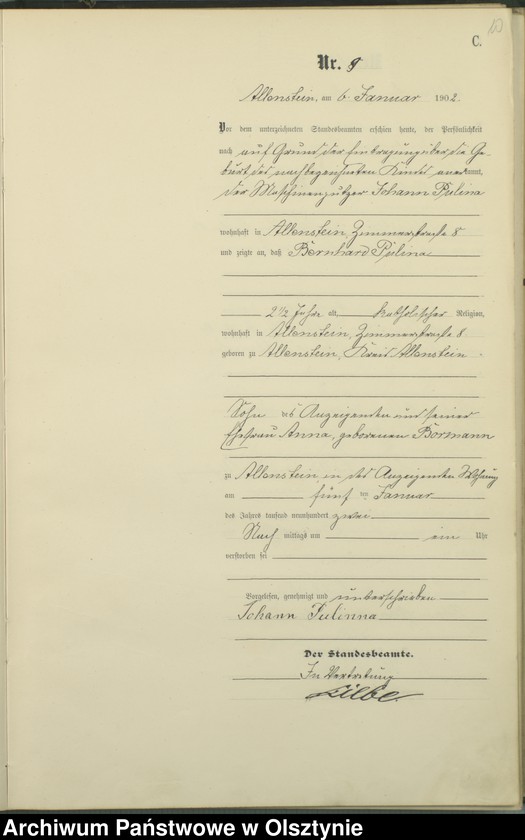 C.
Nr. 9
Allenstein, am 6 Januar 1902.
Vor dem unterzeichneten Standesbeamten erschien heute, der Persönlichkeit
nach auf Grund der Eintragung über die Ge-
burt des nachbezeichneten Kindes anerkannt,
der Maschinenputzer Johann Pulina
wohnhaft in Allenstein, Zimmerstraße 8
und zeigte an, daß Bernhard Pulina
2 1/2 Jahre alt katholischer Religion,
wohnhaft in Allenstein, Zimmerstraße 8
geboren zu Allenstein, Kreis Allenstein
Sohn des Anzeigenden und seiner
Ehefrau Anna, geborenen Bormann
zu Allenstein, in des Anzeigenden Wohnung
am fünften Januar
des Jahres tausend neunhundert zwei
Nachmittags um ein Uhr
verstorben sei
Vorgelesen, genehmigt und unterschrieben
Johann Pulinna
Der Standesbeamte.
In Vertretung
Archiwum Państwowe w Olsztynie